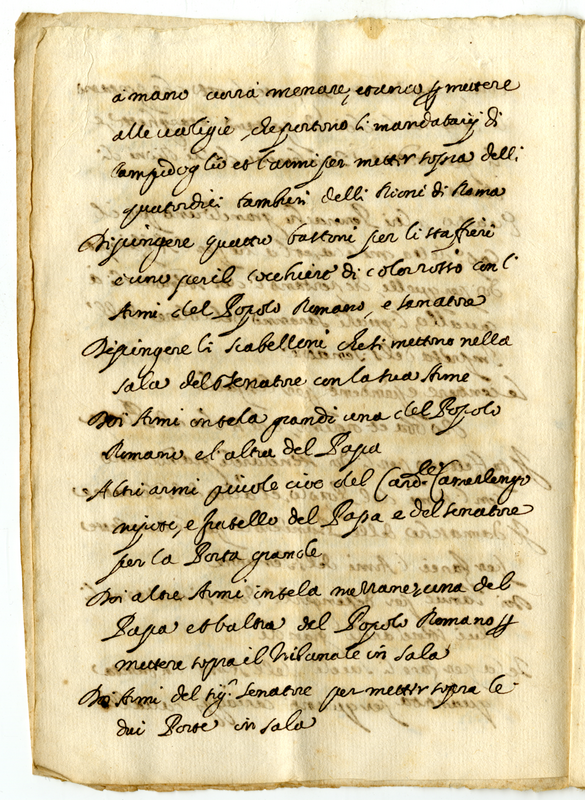 a mano dovrà menare, et anco per mettere
alle valigie, che portono li mandatarij di
Campidoglio et l'armi per metter sopra delli
quatordici tamburi delli Rioni di Roma
Dipingere quattro bastoni per li staffieri
e uno per il cocchiere di color rosso con l'
Armi del Popolo Romano, e senatore
Dipingere li scabelloni che si mettono nella
sala del Senatore con la sua Arme
Doi Armi in tela grandi una del Popolo
Romano et l'altra del Papa
Altri armi piccole cioe del Card.le Camerlengo
nipote, e fratello del Papa e del senatore
per la Porta grande
Doi altre Armi in tela mezzane, una del
Papa et l'altra del Popolo Romano per
mettere sopra il tribunale in sala
Doi Armi del sig.r Senatore per metter sopra le
due Porte in sala